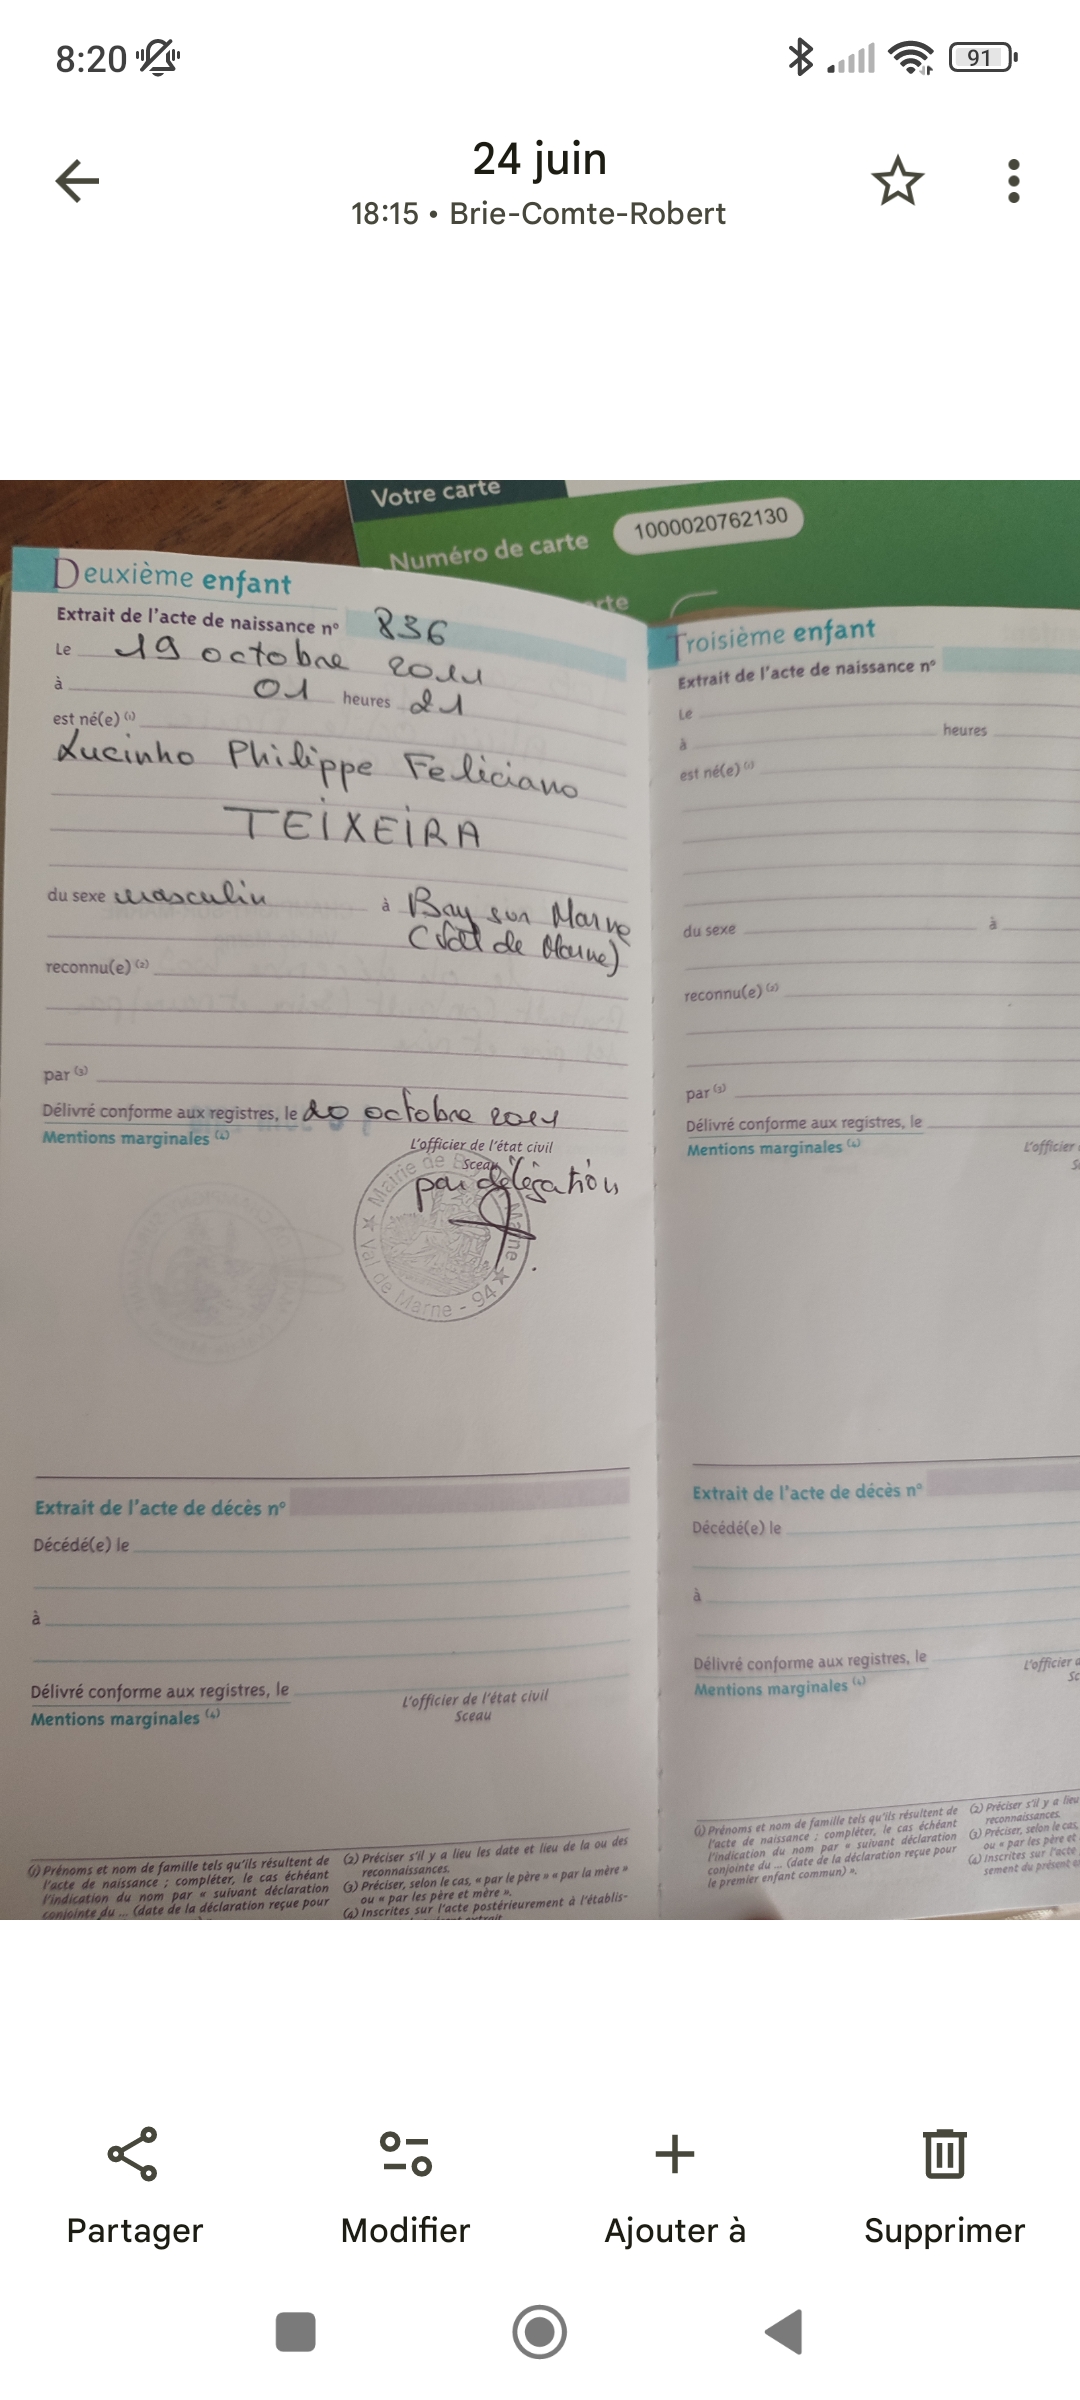 8:20
91
24 juin
18:15 • Brie-Comte-Robert
Votre carte
Numéro de carte 1000020762130
rte
Deuxième enfant
Extrait de l'acte de naissance n° 836
Le 19 octobre 2011
à 01 heures 21
est né(e) (1)
Lucinho Philippe Feliciano
TEIXEIRA
du sexe masculin à Bry sur Marne
(Val de Marne)
reconnu(e) (2)
par (3)
Délivré conforme aux registres, le 20 octobre 2011
Mentions marginales (4)
L'officier de l'état civil
Sceau
par délégation
Mairie de B Marne
Val de Marne - 94
Extrait de l'acte de décès n°
Décédé(e) le
à
Délivré conforme aux registres, le
Mentions marginales (4)
L'officier de l'état civil
Sceau
(1) Prénoms et nom de famille tels qu'ils résultent de
l'acte de naissance ; compléter, le cas échéant
l'indication du nom par « suivant déclaration
conjointe du ... (date de la déclaration reçue pour
(2) Préciser s'il y a lieu les date et lieu de la ou des
reconnaissances.
(3) Préciser, selon le cas, « par le père » « par la mère »
ou « par les père et mère ».
(4) Inscrites sur l'acte postérieurement à l'établis-
extrait
Troisième enfant
Extrait de l'acte de naissance n°
Le
à heures
est né(e) (1)
du sexe à
reconnu(e) (2)
par (3)
Délivré conforme aux registres, le
Mentions marginales (4)
L'officier
S
Extrait de l'acte de décès n°
Décédé(e) le
à
Délivré conforme aux registres, le
Mentions marginales (4)
L'officier
Sc
(1) Prénoms et nom de famille tels qu'ils résultent de
l'acte de naissance ; compléter, le cas échéant
l'indication du nom par « suivant déclaration
conjointe du ... (date de la déclaration reçue pour
le premier enfant commun) ».
(2) Préciser s'il y a lieu
reconnaissances.
(3) Préciser, selon le cas,
ou « par les père et
(4) Inscrites sur l'acte
sement du présent
Partager
Modifier
Ajouter à
Supprimer